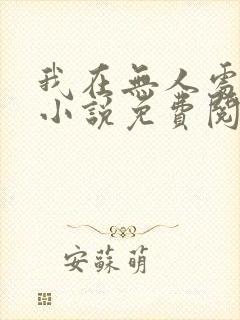 我在無人處
小說免費閱
安蘇萌